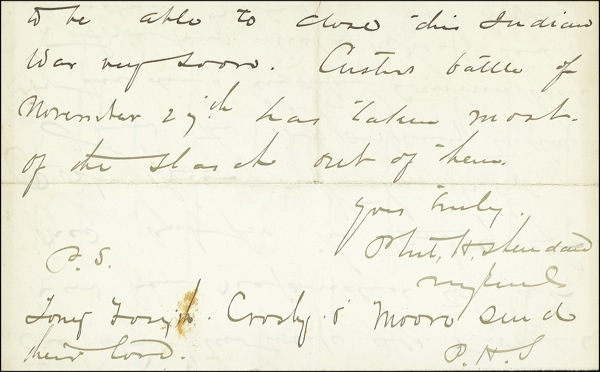 to be able to close this Indian
War very soon. Custers battle of
November 27th has taken most
of the starch out of them.
Yours truly,
Phil, H. Sheridan
Maj Genl
P.S.
Tony Forsyth. Crosby & Moore send
their love.
P.H.S